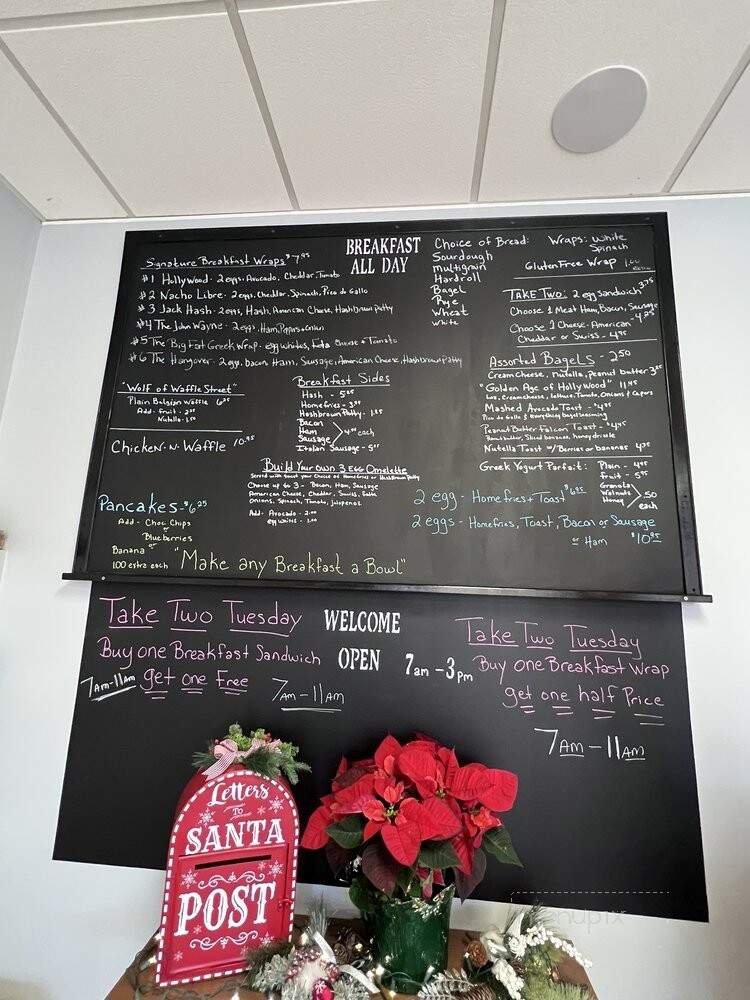 BREAKFAST
ALL DAY
Signature Breakfast Wraps $7.95
#1 Hollywood - 2 eggs, Avocado, Cheddar, Tomato
#2 Nacho Libre - 2 eggs, Cheddar, Spinach, Pico de Gallo
#3 Jack Hash - 2 eggs, Hash, American Cheese, Hashbrown Patty
#4 The John Wayne - 2 eggs, Ham, Peppers + Onion
#5 The Big Fat Greek Wrap - egg whites, Feta Cheese + Tomato
#6 The Hangover - 2 eggs, bacon, Ham, Sausage, American Cheese, Hashbrown Patty
"Wolf of Waffle Street"
Plain Belgian Waffle 6.25
Add - Fruit - 2.00
Nutella - 1.50
Chicken-N-Waffle 10.95
Pancakes - $6.25
Add - Choc Chips
or
Blueberries
or
Banana
1.00 extra each
Breakfast Sides
Hash - 5.00
Homefries - 3.00
Hashbrown Patty -
Bacon
Ham
Sausage
4.00 each
Italian Sausage - 5.00
Build Your Own 3 Egg Omelette
Served with toast your choice of Homefries or Hashbrown Patty
Choose up to 3 - Bacon, Ham, Sausage
American Cheese, Cheddar, Swiss, Feta
Onions, Spinach, Tomato, jalapenos
Add - Avocado - 2.00
egg whites - 1.00
"Make any Breakfast a Bowl"
Choice of Bread:
Sourdough
Multigrain
Hardroll
Bagel
Rye
Wheat
White
Wraps: White
Spinach
Gluten Free Wrap 1.00
extra
TAKE TWO: 2 egg sandwich 3.75
Choose 1 Meat Ham, Bacon, Sausage
4.25
Choose 1 Cheese - American
Cheddar or Swiss - 4.75
Assorted Bagels - 2.50
Cream Cheese, Nutella, peanut butter 3.25
"Golden Age of Hollywood" 11.95
Lox, Creamcheese, lettuce, Tomato, Onions + Capers
Mashed Avocado Toast -
Pico de Gallo + Everything bagel seasoning
Peanut Butter Falcon Toast -
Peanut butter, Sliced bananas, honey drizzle
Nutella Toast w/Berries or bananas 4.95
Greek Yogurt Parfait: Plain - 4.95
Fruit - 5.95
Granola
Walnuts
Honey
.50
each
2 egg - Homefries + Toast $6.95
2 eggs - Homefries, Toast, Bacon or Sausage
or Ham $10.95
Take Two Tuesday
Buy one Breakfast Sandwich
7AM-11AM get one Free 7AM-11AM
WELCOME
OPEN 7am-3pm
Take Two Tuesday
Buy one Breakfast Wrap
get one half Price
7AM-11AM
Letters
TO
SANTA
POST
menupix